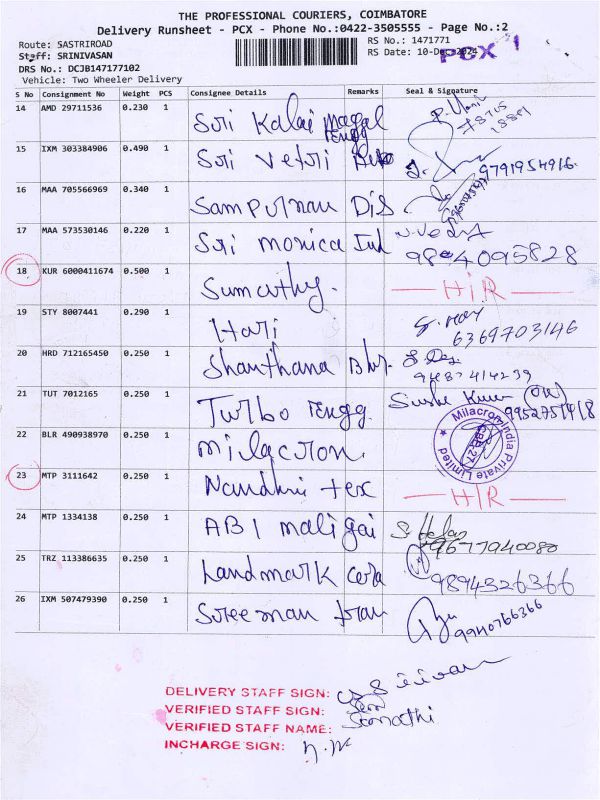 THE PROFESSIONAL COURIERS, COIMBATORE
Delivery Runsheet - PCX - Phone No.:0422-3505555 - Page No.:2
Route: SASTRIROAD RS No.: 1471771
Staff: SRINIVASAN RS Date: 10-Dec-2024 PCX 1
DRS No.: DCJB147177102
Vehicle: Two Wheeler Delivery
S No Consignment No Weight PCS Consignee Details Remarks Seal & Signature
14 AMD 29711536 0.230 1 Sri Kalai Magal Engg
15 IXM 303384906 0.490 1 Sri Vetri 9791954916
16 MAA 705566969 0.340 1 Sampurnau Dis
17 MAA 573530146 0.220 1 Sri monica Ind 9894095828
18 KUR 6000411674 0.500 1 Sumathy. HIR
19 STY 8007441 0.290 1 Hari 6369703146
20 HRD 712165450 0.250 1 Shanthana Bhr. 9487414239
21 TUT 7012165 0.250 1 Turbo Engg.
22 BLR 490938970 0.250 1 milacron. Milacron India Private Limited CBE-27
23 MTP 3111642 0.250 1 Nandhni tex HIR
24 MTP 1334138 0.250 1 ABI maligai 9677940080
25 TRZ 113386635 0.250 1 Landmark cera 9894326366
26 IXM 507479390 0.250 1 Sreeman tran 9940766366
DELIVERY STAFF SIGN:
VERIFIED STAFF SIGN:
VERIFIED STAFF NAME: Sumathi
INCHARGE SIGN: